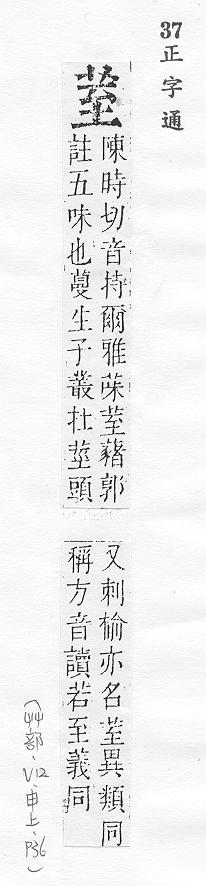 37 正字通
荎
陳時切音持爾雅菋荎藸郭
註五味也蔓生子叢在莖頭
又刺榆亦名荎異類同
稱方音讀若至義同
(艸部、V12、申上、P36)